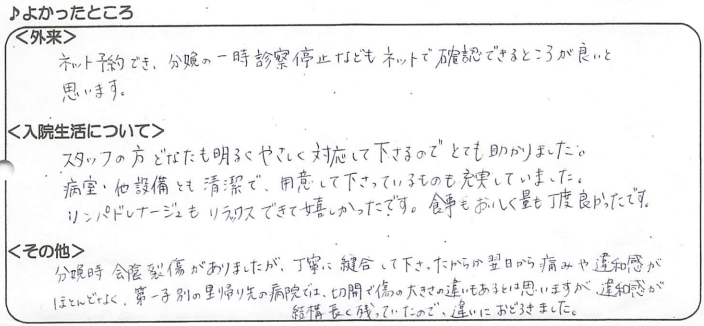 ♪よかったところ
<外来>
ネット予約でき、分娩の一時診察停止などもネットで確認できるところが良いと
思います。
<入院生活について>
スタッフの方どなたも明るくやさしく対応して下さるのでとても助かりました。
病室・他設備とも清潔で、用意して下さっているものも充実していました。
リンパドレナージュもリラックスできて嬉しかったです。食事もおいしく量も丁度良かったです。
<その他>
分娩時会陰裂傷がありましたが、丁寧に縫合して下さったからか翌日から痛みや違和感が
ほとんどなく、第一子別の里帰り先の病院では、切開で傷の大きさの違いもあるとは思いますが、違和感が
結構長く残っていたので、違いにおどろきました。